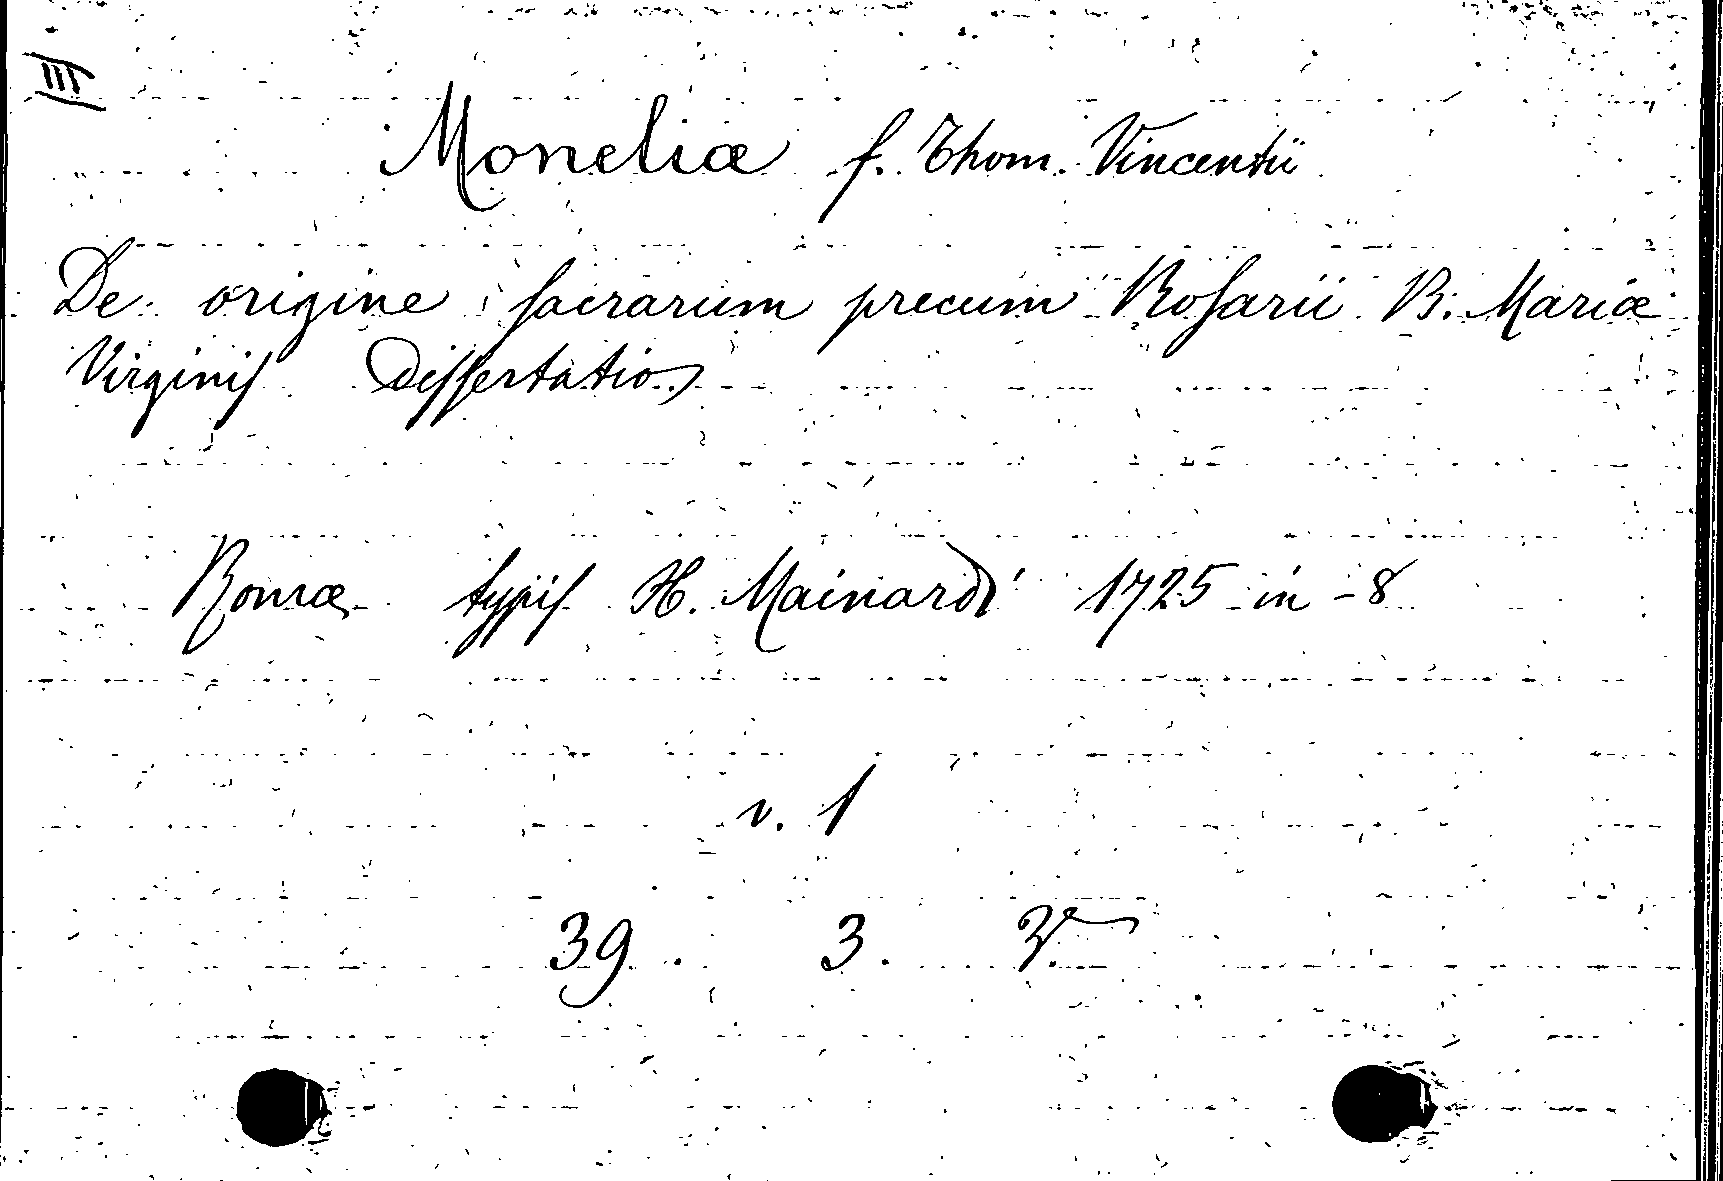 III
Moneliæ f. Thom. Vincentii
De origine sacrarum precum Rosarii B. Mariæ
Virginis Dissertatio
Romæ typis H. Mainardi 1725 in-8
v. 1
39. 3.